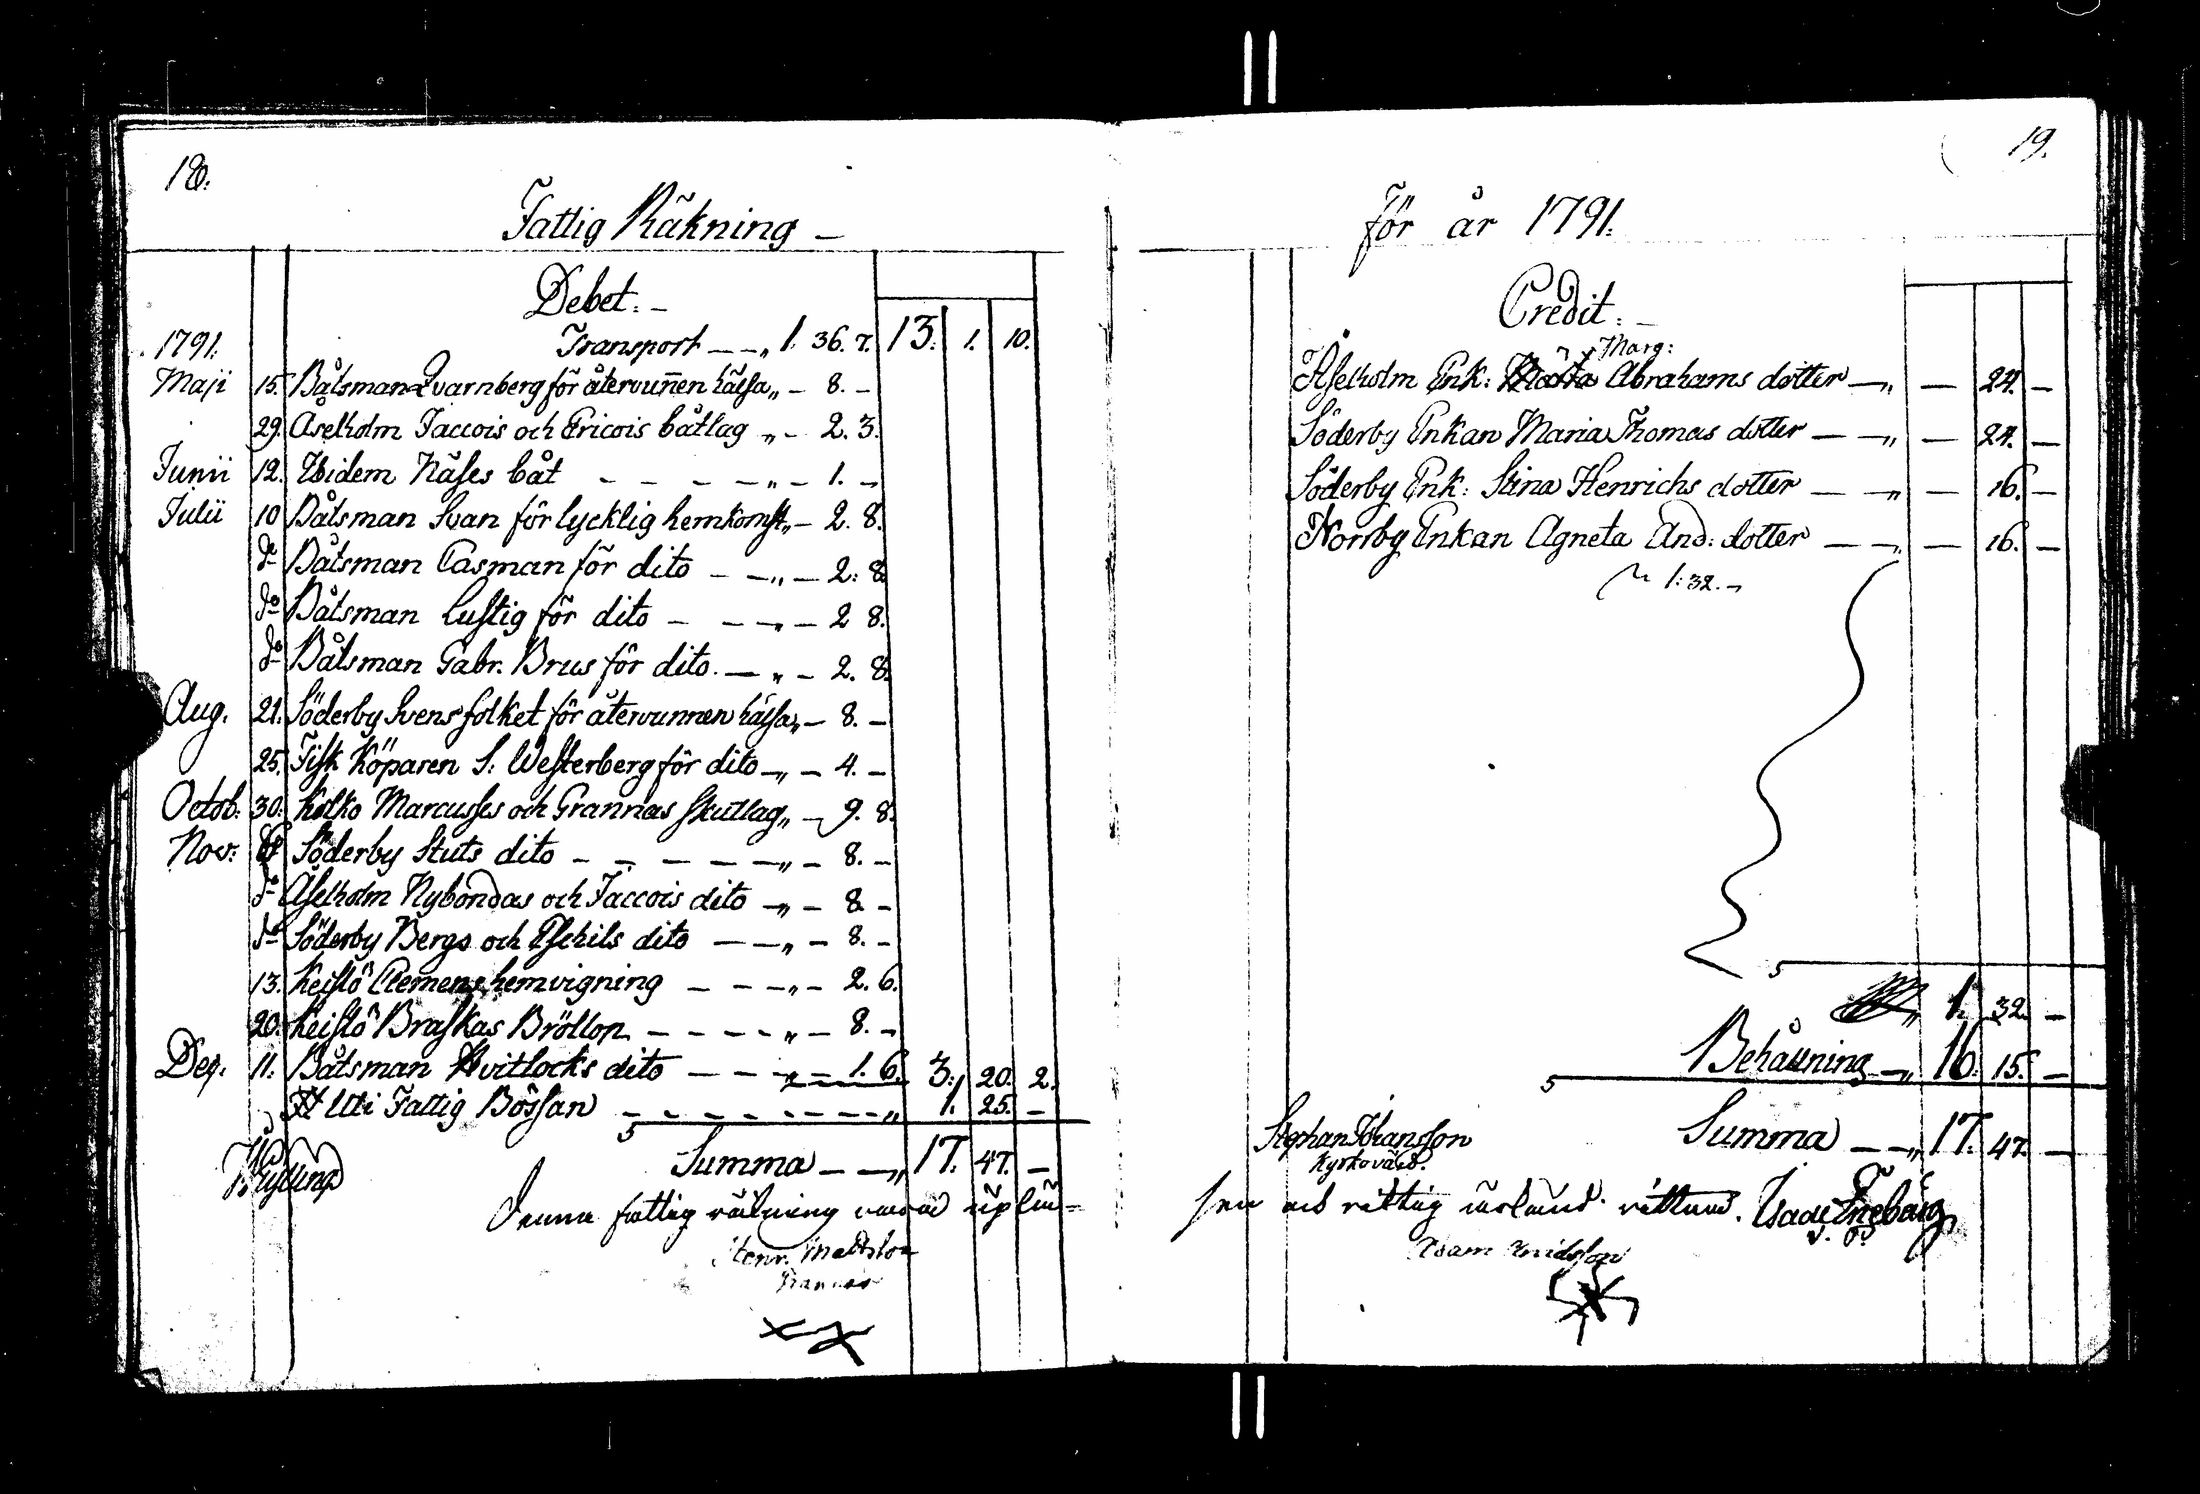 18.
Fattig Räkning –
Debet. –
1791. Transport – – „ 1. 36. 7. 13. 1. 10.
Maji 15. Båtsman Qvarnberg för återvunnen hälsa „ – 8. –
29. Aselholm Jaccois och Ericois båtlag „ – 2. 3.
Junii 12. Ibidem Näses båt – – – – „ – 1. –
Julii 10 Båtsman Svan för lycklig hemkomst „ – 2. 8.
do Båtsman Casman för dito – – „ – 2: 8.
do Båtsman Lustig för dito – – – „ – 2 8.
do Båtsman Gabr. Brus för dito. – „ – 2. 8.
Aug. 21. Söderby Svens folket för återvunnen hälsa „ – 8. –
25. Fisk Köparen S: Westerberg för dito – „ – 4. –
Octob. 30. Kolko Marcusses och Grannas skutlag „ – 9. 8.
Nov: 6 Söderby Stuts dito – – – – – „ – 8. –
do Aselholm Nybondas och Jaccois dito – „ – 8 –
do Söderby Bergs och Eschils dito – – „ – 8. –
13. Keislö Clemens hemvigning – – – „ – 2. 6.
20. Keislö Braskas Bröllop – – – – „ – 8. –
Dec. 11. Båtsman Hvitlocks dito – – – „ – 1. 6. 3. 20. 2.
Uti Fattig Bössan – – – – – – – „ 1. 25. –
Summa – – „ 17. 47. –
Denna fattig räkning vara uplä=
Henr. Mattsson
Grannas
19.
för år 1791.
Credit. –
Marg:
Åselholm Enk: Abrahams dotter – „ – 24. –
Söderby Enkan Maria Thomas dotter – – „ – 24. –
Söderby Enk: Stina Henrichs dotter – – „ – 16. –
Norrby Enkan Agneta And: dotter – – „ – 16. –
1: 32. –
„ 1. 32. –
Behållning – „ 16. 15. –
Stephan Johansson Summa – – „ 17. 47. –
Kyrkovärd.
sen och riktig